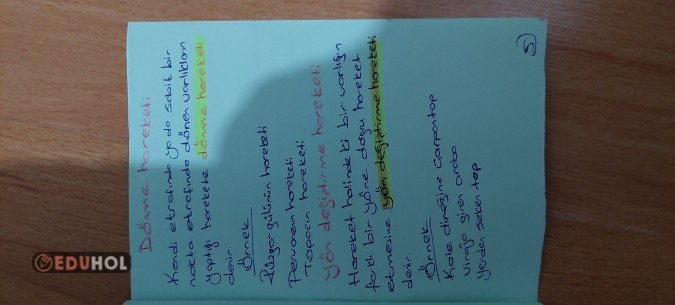 Dönme hareketi
Kendi etrafında ya da sabit bir
nokta etrafında dönen varlıkların
yaptığı harekete dönme hareketi
denir.
Örnek
Rüzgar gülünün hareketi
Pervanenin hareketi
Topacın hareketi
Yön değiştirme hareketi
Hareket halindeki bir varlığın
farklı bir yöne doğru hareket
etmesine yön değiştirme hareketi
denir.
Örnek
Kale direğine çarpan top
viraja giren araba
yerden seken top
5)
EDUHOL